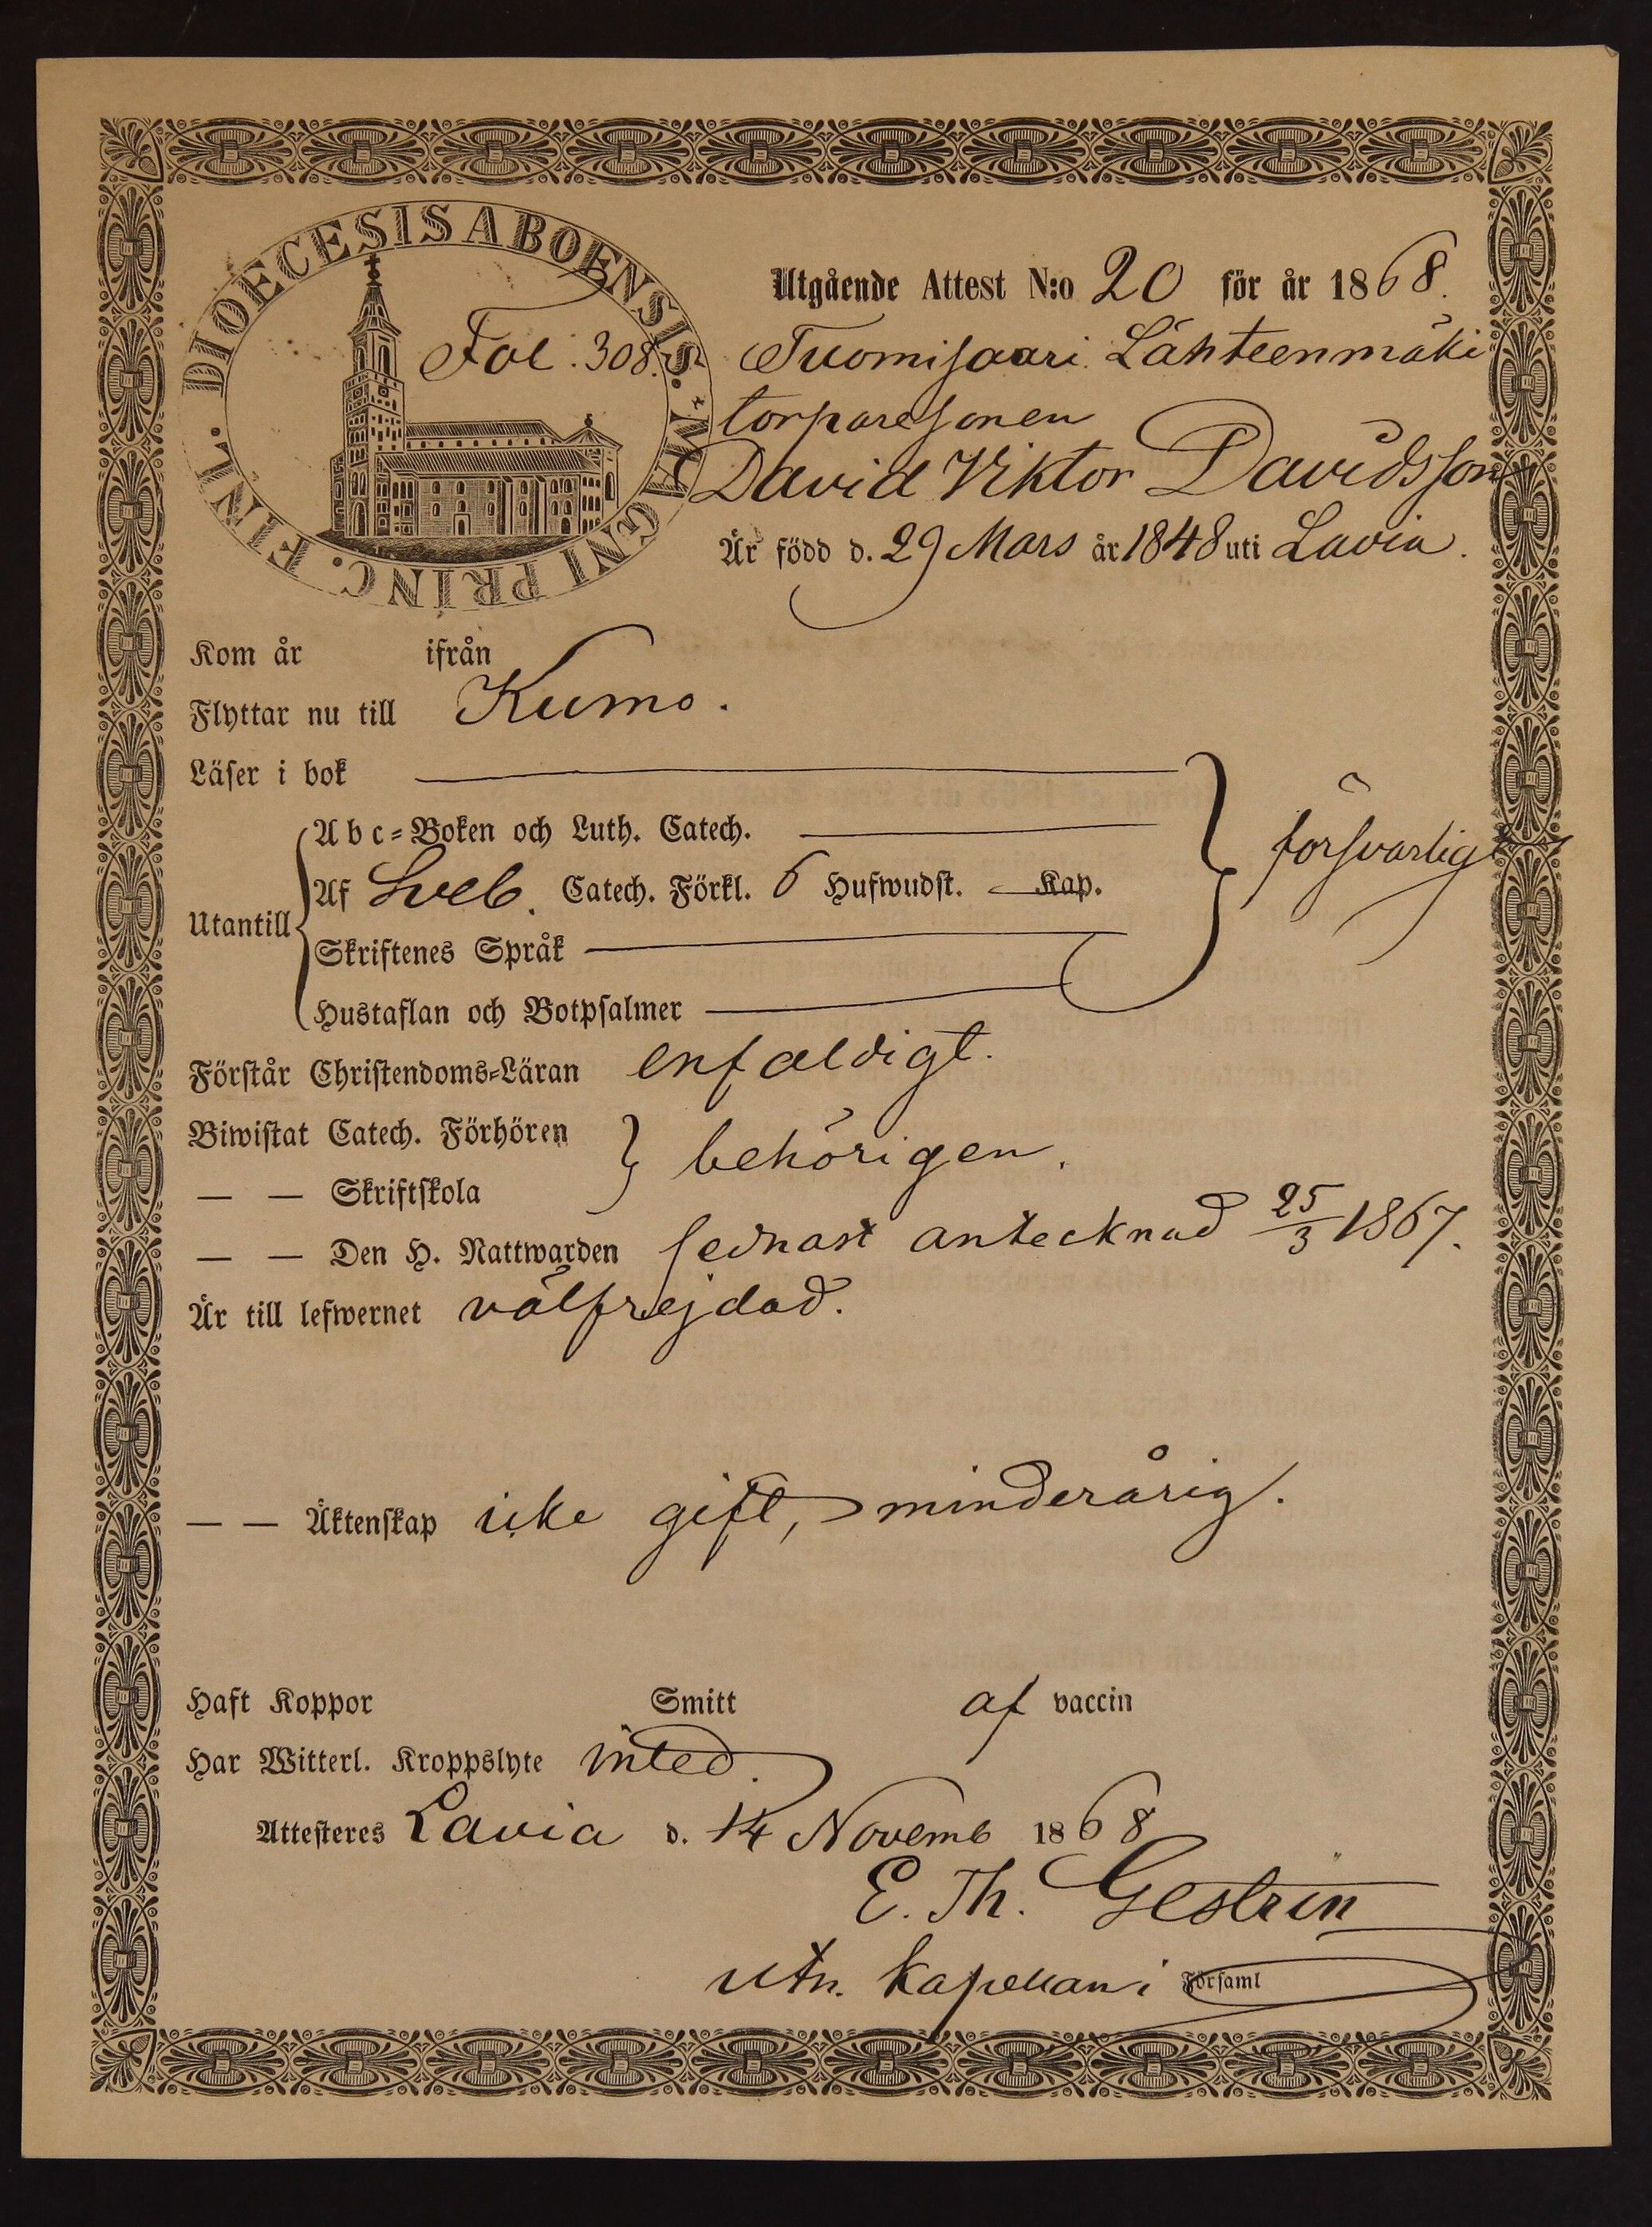 DIOECESIS ABOENSIS. MAGNI PRINC. FINL.
Fol. 308.
Utgående Attest N:o 20 för år 1868.
Tuomisaari Lähteenmäki
torparesonen
David Viktor Davidsson
Är född d. 29 Mars år 1848 uti Lavia.
Kom år ifrån
Flyttar nu till Kumo.
Läser i bok
Abc-Boken och Luth. Catech.
försvarligt
Utantill
Af Sveb. Catech. Förkl. 6 Hufwudst. Kap.
Skriftenes Språk
Hustaflan och Botpsalmer
Förstår Christendoms-Läran enfaldigt.
Biwistat Catech. Förhören
behörigen.
— — Skriftskola
— — Den H. Nattwarden sednast antecknad 25/3 1867.
Är till lefwernet välfrejdad.
— — Äktenskap icke gift, minderårig.
Haft Koppor Smitt af vaccin
Har Witterl. Kroppslyte inted.
Attesteres Lavia d. 14 Novemb 1868
E. Th. Gestrin
utn. kapellan i Församl